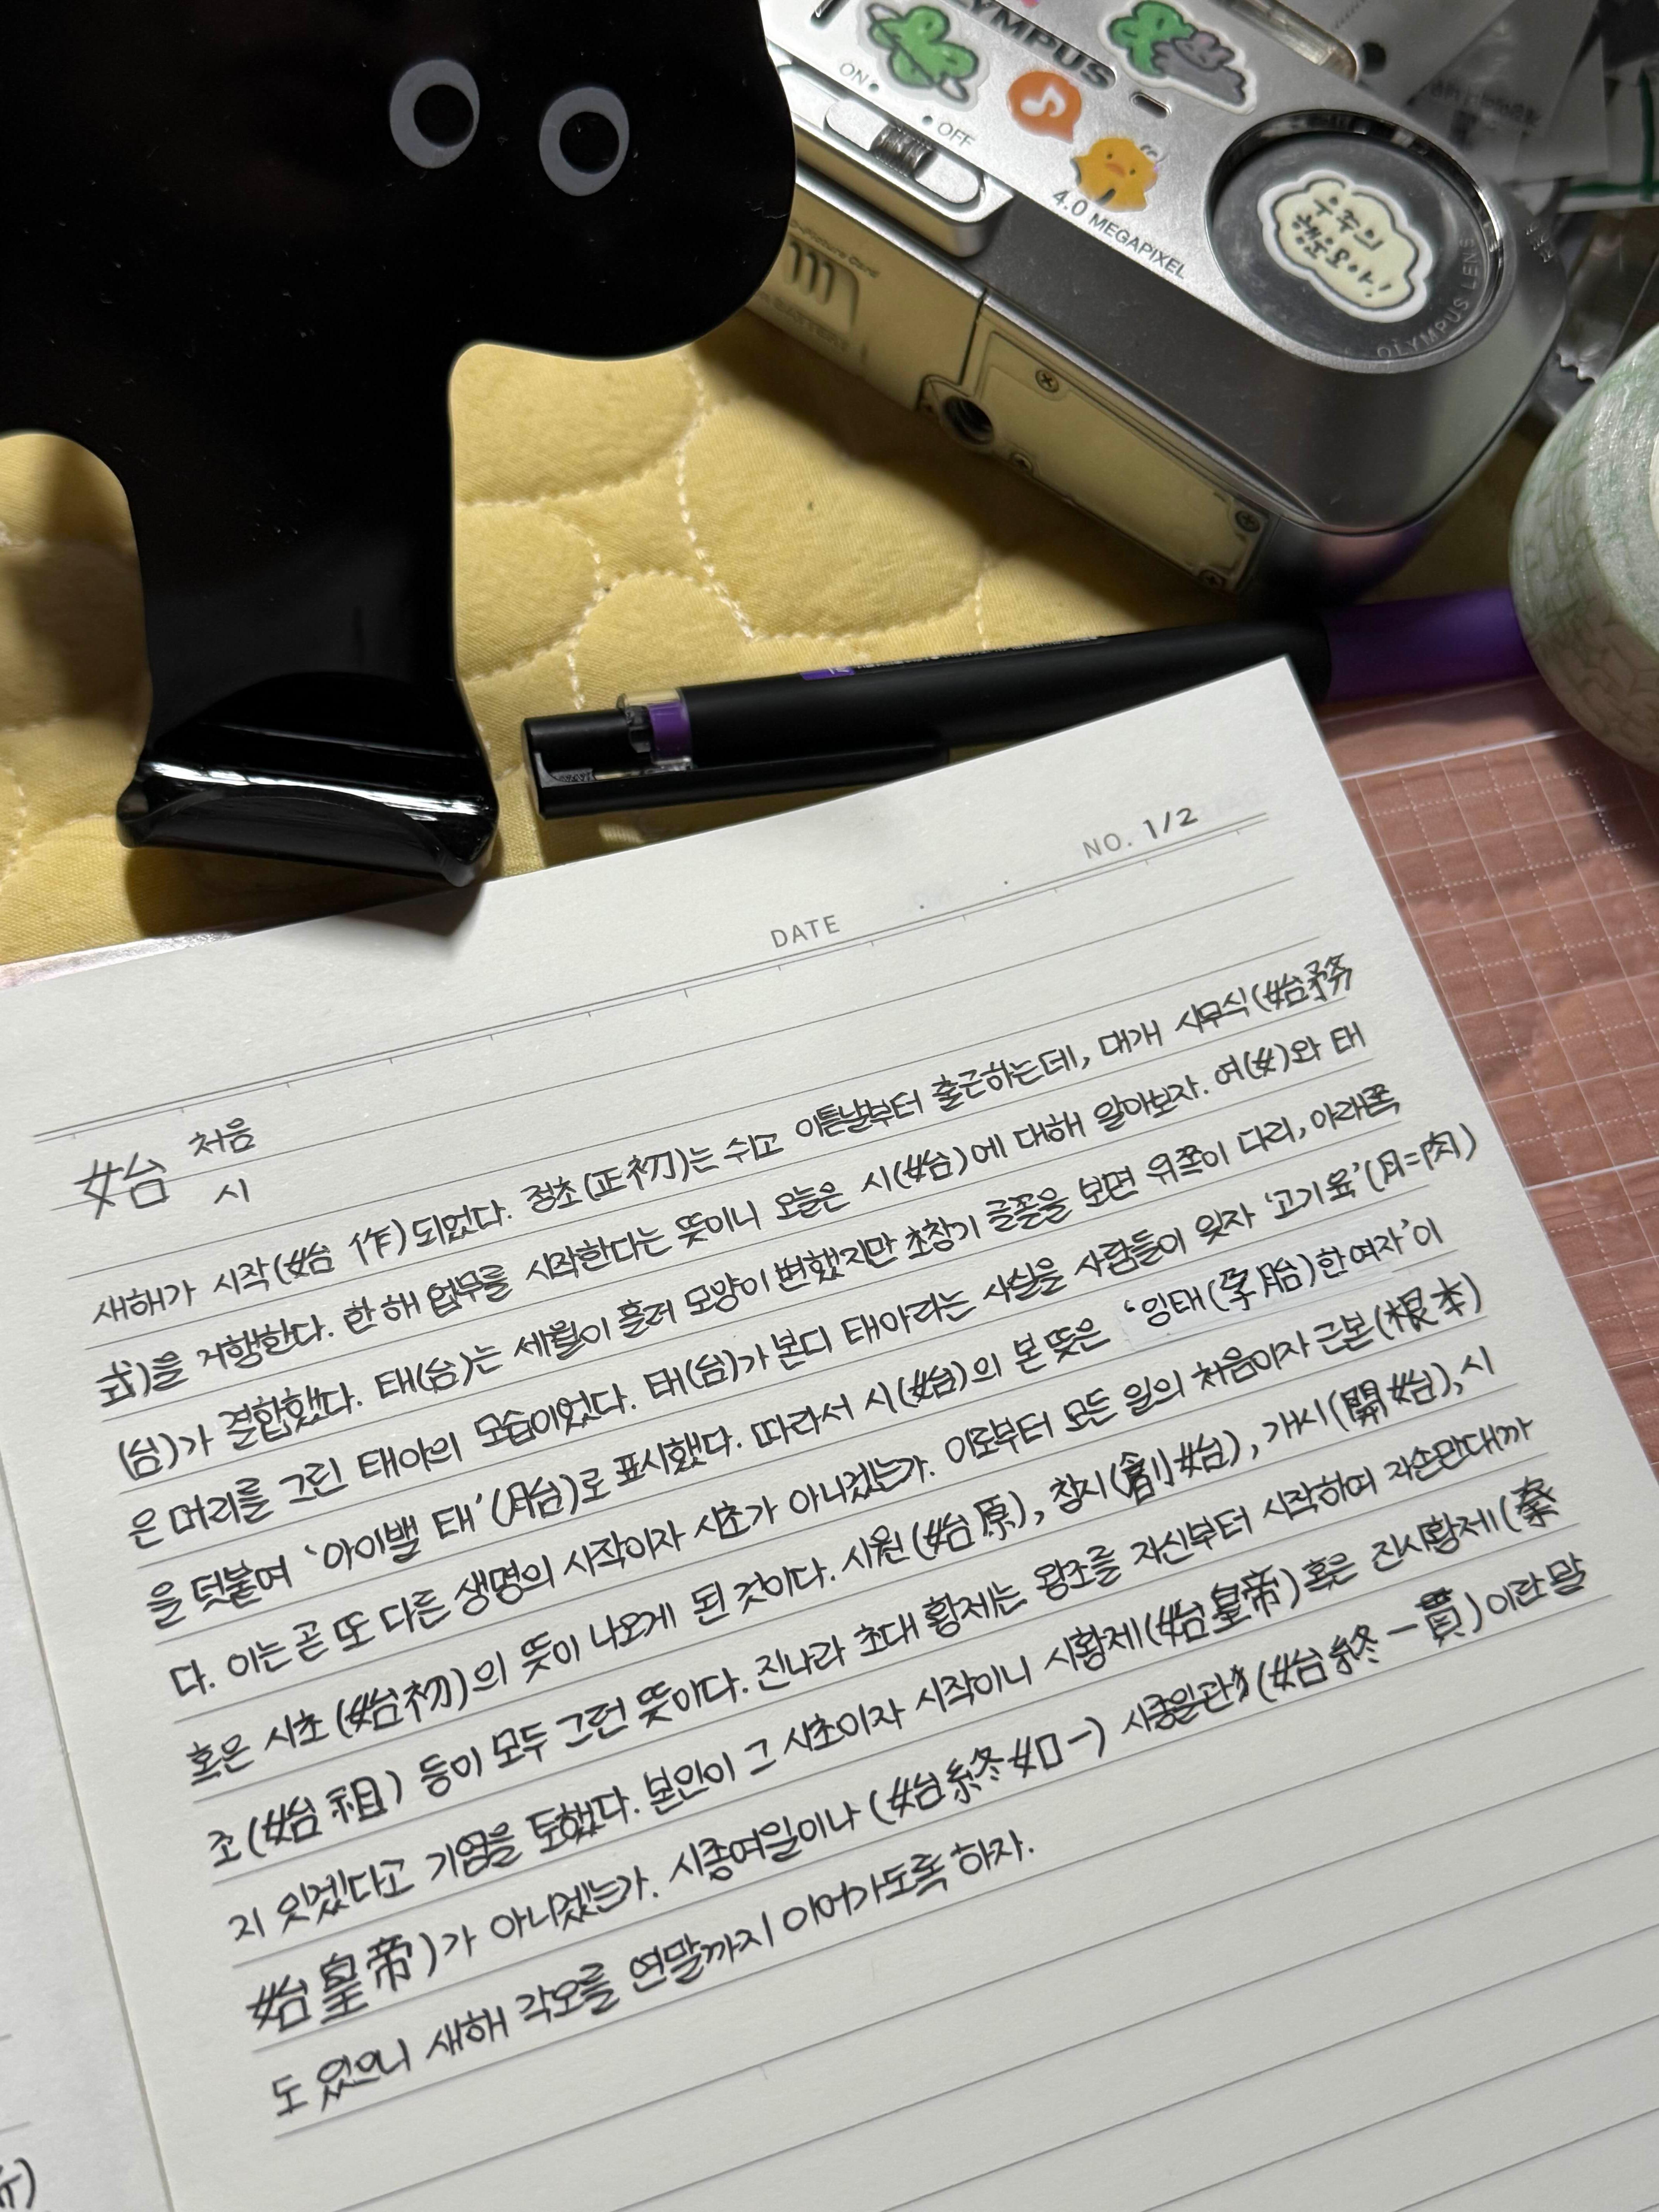 OLYMPUS
ON
OFF
4.0 MEGAPIXEL
우주의
행운아!
OLYMPUS LENS
NO. 1/2
DATE
始 처음
시
새해가 시작(始 作)되었다. 정초(正初)는 쉬고 이튿날부터 출근하는데, 대개 시무식(始務
式)을 거행한다. 한 해 업무를 시작한다는 뜻이니 오늘은 시(始)에 대해 알아보자. 여(女)와 태
(台)가 결합했다. 태(台)는 세월이 흘러 모양이 변했지만 초창기 글꼴을 보면 위쪽이 다리, 아래쪽
은 머리를 그린 태아의 모습이었다. 태(台)가 본디 태아라는 사실을 사람들이 잊자 '고기 육'(月=肉)
을 덧붙여 '아이밸 태'(胎)로 표시했다. 따라서 시(始)의 본 뜻은 '잉태(孕胎)한 여자'이
다. 이는 곧 또 다른 생명의 시작이자 시초가 아니겠는가. 이로부터 모든 일의 처음이자 근본(根本)
혹은 시초(始初)의 뜻이 나오게 된 것이다. 시원(始原), 창시(創始), 개시(開始), 시
조(始祖) 등이 모두 그런 뜻이다. 진나라 초대 황제는 왕조를 자신부터 시작하여 자손만대까
지 잇겠다고 기염을 토했다. 본인이 그 시초이자 시작이니 시황제(始皇帝) 혹은 진시황제(秦
始皇帝)가 아니겠는가. 시종여일이나 (始終如一) 시종일관(始終一貫)이란 말
도 있으니 새해 각오를 연말까지 이어가도록 하자.